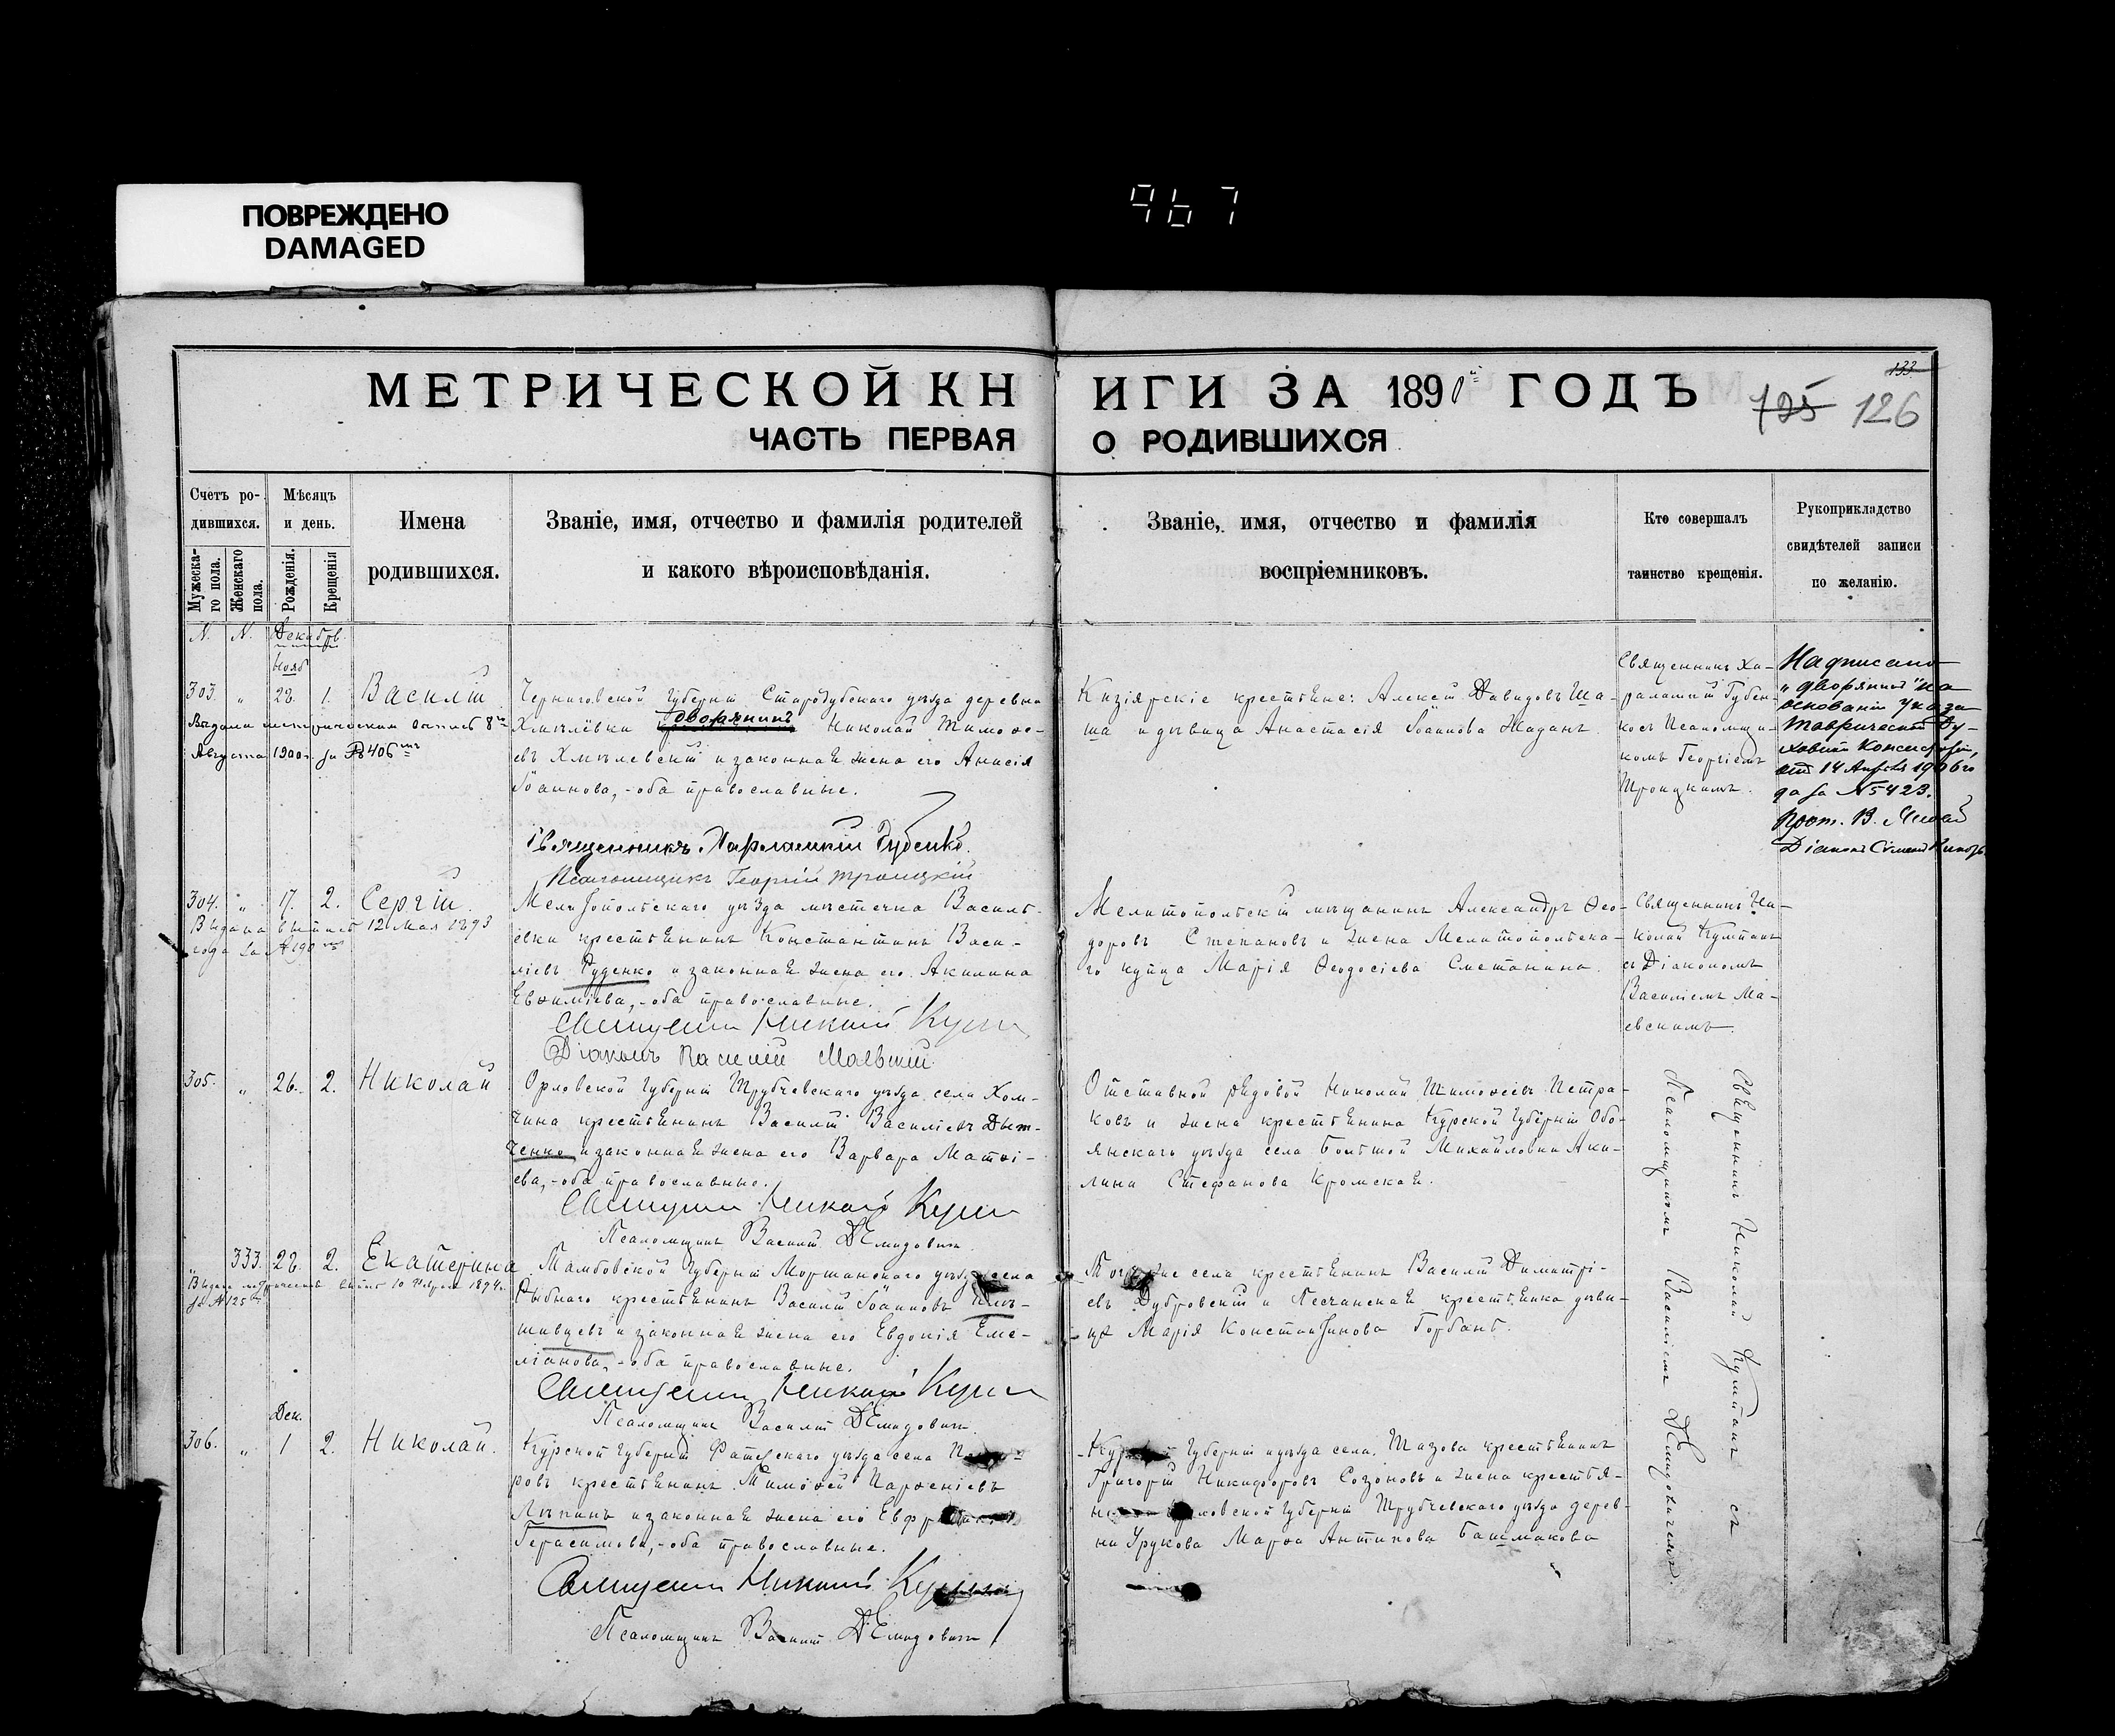 ПОВРЕЖДЕНО
DAMAGED
967
МЕТРИЧЕСКОЙ КНИГИ ЗА 1890й ГОДЪ
133
125 126
ЧАСТЬ ПЕРВАЯ О РОДИВШИХСЯ
Счетъ ро-
дившихся.
Мужеска-
го пола.
Женскаго
пола.
Мѣсяцъ
и день.
Рожденія.
Крещенія
Имена
родившихся.
Званіе, имя, отчество и фамилія родителей
и какого вѣроисповѣданія.
Званіе, имя, отчество и фамилія
воспріемниковъ.
Кто совершалъ
таинство крещенія.
Рукоприкладство
свидѣтелей записи
по желанію.
N. N. Декабрь
Нояб
303 " 28. 1. Василій
Выдана метрическая выпись 8го
Августа 1900г. за № 406мъ
Черниговской Губерніи Стародубскаго уѣзда деревни
Хмѣлёвки дворянинъ Николай Тимоѳе-
евъ Хмѣлевскій и законная жена его Анисія
Іоаннова, - оба православные.
Священникъ Харлампій Губенко.
Псаломщикъ Георгій Троицкій
Кизіярскіе крестьяне: Алексій Давидовъ Ша-
ша и дѣвица Анастасія Іоаннова Жаданъ.
Священникъ Ха-
рлампій Губен-
ко съ Псаломщи-
комъ Георгіемъ
Троицкимъ.
Надписано
"дворянинъ" на
основаніи указа
Таврической Ду-
ховной Консисторіи,
отъ 14 Апрѣля 1906 го
да за № 5423.
Прот. В.
Діаконъ
304. " 17. 2. Сергій.
Выдана выпись 12 Мая 1893
года за № 190
Мелитопольскаго уѣзда мѣстечка Василь-
евки крестьянинъ Константинъ Васи-
ліевъ Руденко и законная жена его Акилина
Евѳиміева, - оба православные.
Священникъ Николай
Діаконъ Василій Маевскій
Мелитопольскій мѣщанинъ Александръ Ѳео-
доровъ Степановъ и жена Мелитопольска-
го купца Марія Ѳеодосіева Сметанина.
Священникъ Ни-
колай Куштанъ
съ Діакономъ
Василіемъ Ма-
евскимъ.
305. " 26. 2. Николай
Орловской Губерніи Трубчевскаго уѣзда села Хом-
чина крестьянинъ Василій Василіевъ Дыт-
ченко и законная жена его Варвара Матѳі-
ева, - оба православные.
Священникъ Николай
Псаломщикъ Василій Демидовичъ
Отставной рядовой Николай Тимоѳеевъ Петра-
ковъ и жена крестьянина Курской Губерніи Обо-
янскаго уѣзда села Большой Михайловки Аки-
лина Стефанова Кромская.
Священникъ Николай Куштанъ съ
Псаломщикомъ Василіемъ Демидовичемъ.
" 333. 28. 2. Екатерина
Выдана метрическая выпись 10 1894 г.
за № 125
Тамбовской Губерніи Моршанскаго уѣзда села
Рыбнаго крестьянинъ Василій Іоанновъ
и законная жена его Евдокія Еме-
ліанова, - оба православные.
Священникъ Николай
Псаломщикъ Василій Демидовичъ.
села крестьянинъ Василій Димитрі-
евъ Дубровскій и Песчанская крестьянка дѣви-
ца Марія Константинова Горбань.
Дек.
306. " 1 2. Николай.
Курской Губерніи Фатежскаго уѣзда села
ровъ крестьянинъ Тимоѳей Парѳеніевъ
Лыкинъ и законная жена его
Герасимова, - оба православные.
Священникъ Николай
Псаломщикъ Василій Демидовичъ
Губерніи и уѣзда села Шазова крестьянинъ
Григорій Никифоровъ Созоновъ и жена крестья-
Орловской Губерніи Трубчевскаго уѣзда дерев-
ни Урукова Марѳа Антипова Башмакова